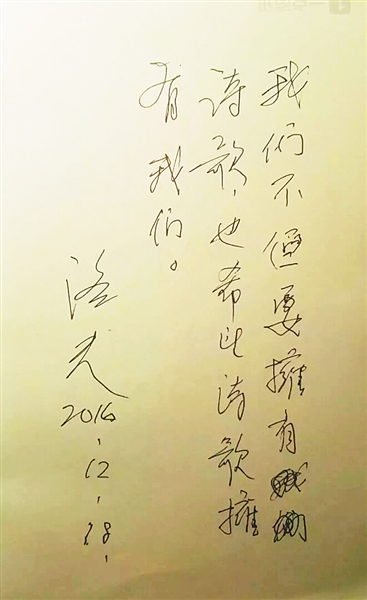 我们不但要擁有
诗歌，也希望诗歌擁
有我们。
洛夫
2016.12.